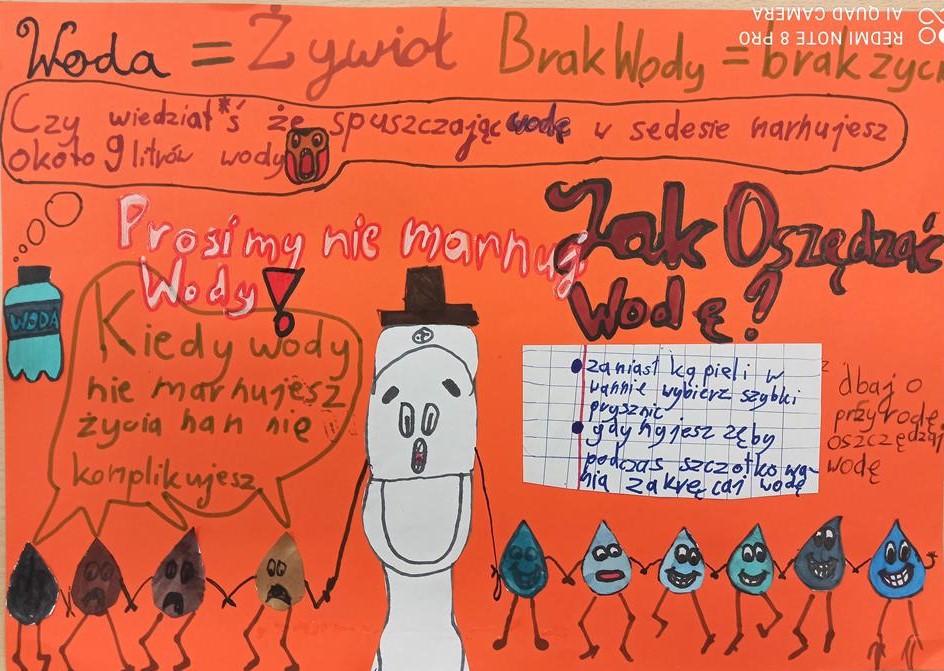 Woda = Żywioł Brak Wody = brak życi
REDMI NOTE 8 PRO
AI QUAD CAMERA
Czy wiedział*ś że spuszczając wodę w sedesie marnujesz
około 9 litrów wody
Prosimy nie marnuj
Wody!
Jak Oszędzać
wodę?
WODA
Kiedy wody
nie marnujesz
życia nam nie
komplikujesz
zamiast kąpieli w
wannie wybierz szybki
prysznic
gdy myjesz zęby
podczas szczotkowa-
nia zakręcaj wodę
dbaj o
przyrodę
oszczędzaj
wodę